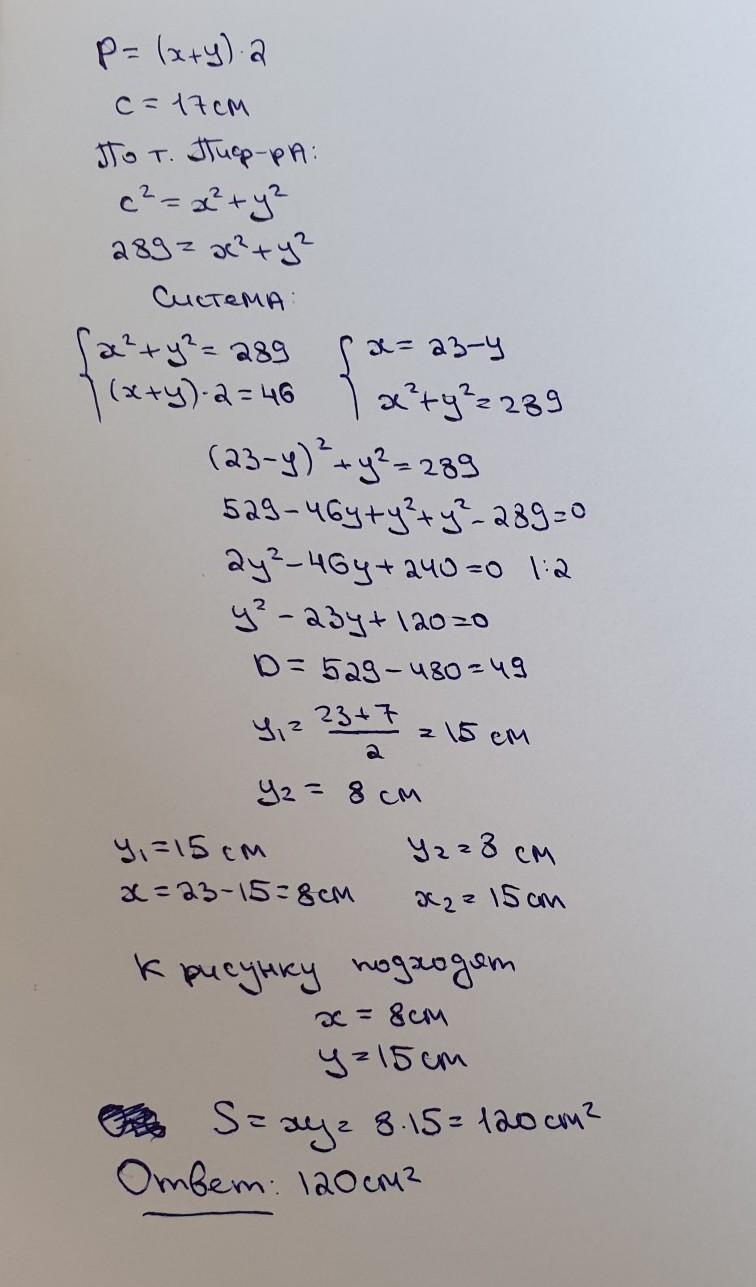 P = (x+y)·2
c = 17см
По т. Пиф-рА:
c² = x² + y²
289 = x² + y²
Система:
{x² + y² = 289 {x = 23-y
{(x+y)·2 = 46 {x² + y² = 289
(23-y)² + y² = 289
529 - 46y + y² + y² - 289 = 0
2y² - 46y + 240 = 0 |:2
y² - 23y + 120 = 0
D = 529 - 480 = 49
y₁ = (23+7)/2 = 15 см
y₂ = 8 см
y₁ = 15 см y₂ = 8 см
x = 23-15 = 8см x₂ = 15 см
К рисунку подходят
x = 8см
y = 15 см
S = xy = 8·15 = 120 см²
Ответ: 120 см²